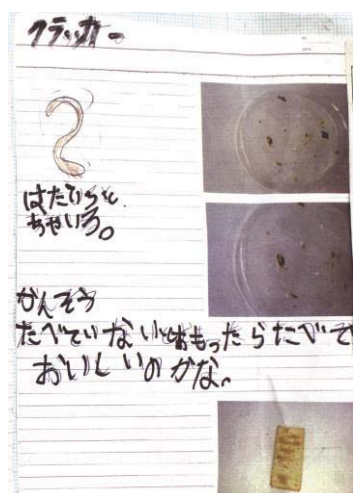 クラッカー
はだいろと
ちゃいろ。
かんそう
たべていないとおもったらたべて
おいしいのかな。